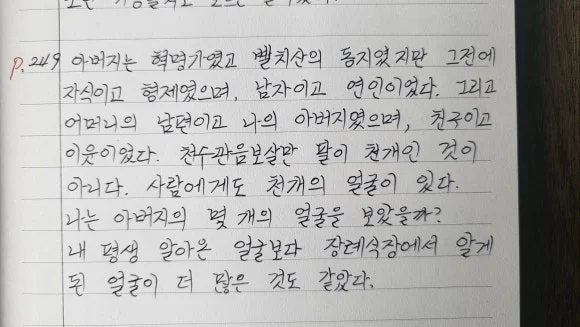 p.249 아버지는 혁명가였고 빨치산의 동지였지만 그전에
자식이고 형제였으며, 남자이고 연인이었다. 그리고
어머니의 남편이고 나의 아버지였으며, 친구이고
이웃이었다. 천수관음보살만 팔이 천개인 것이
아니다. 사람에게도 천개의 얼굴이 있다.
나는 아버지의 몇 개의 얼굴을 보았을까?
내 평생 알아온 얼굴보다 장례식장에서 알게
된 얼굴이 더 많은 것도 같았다.